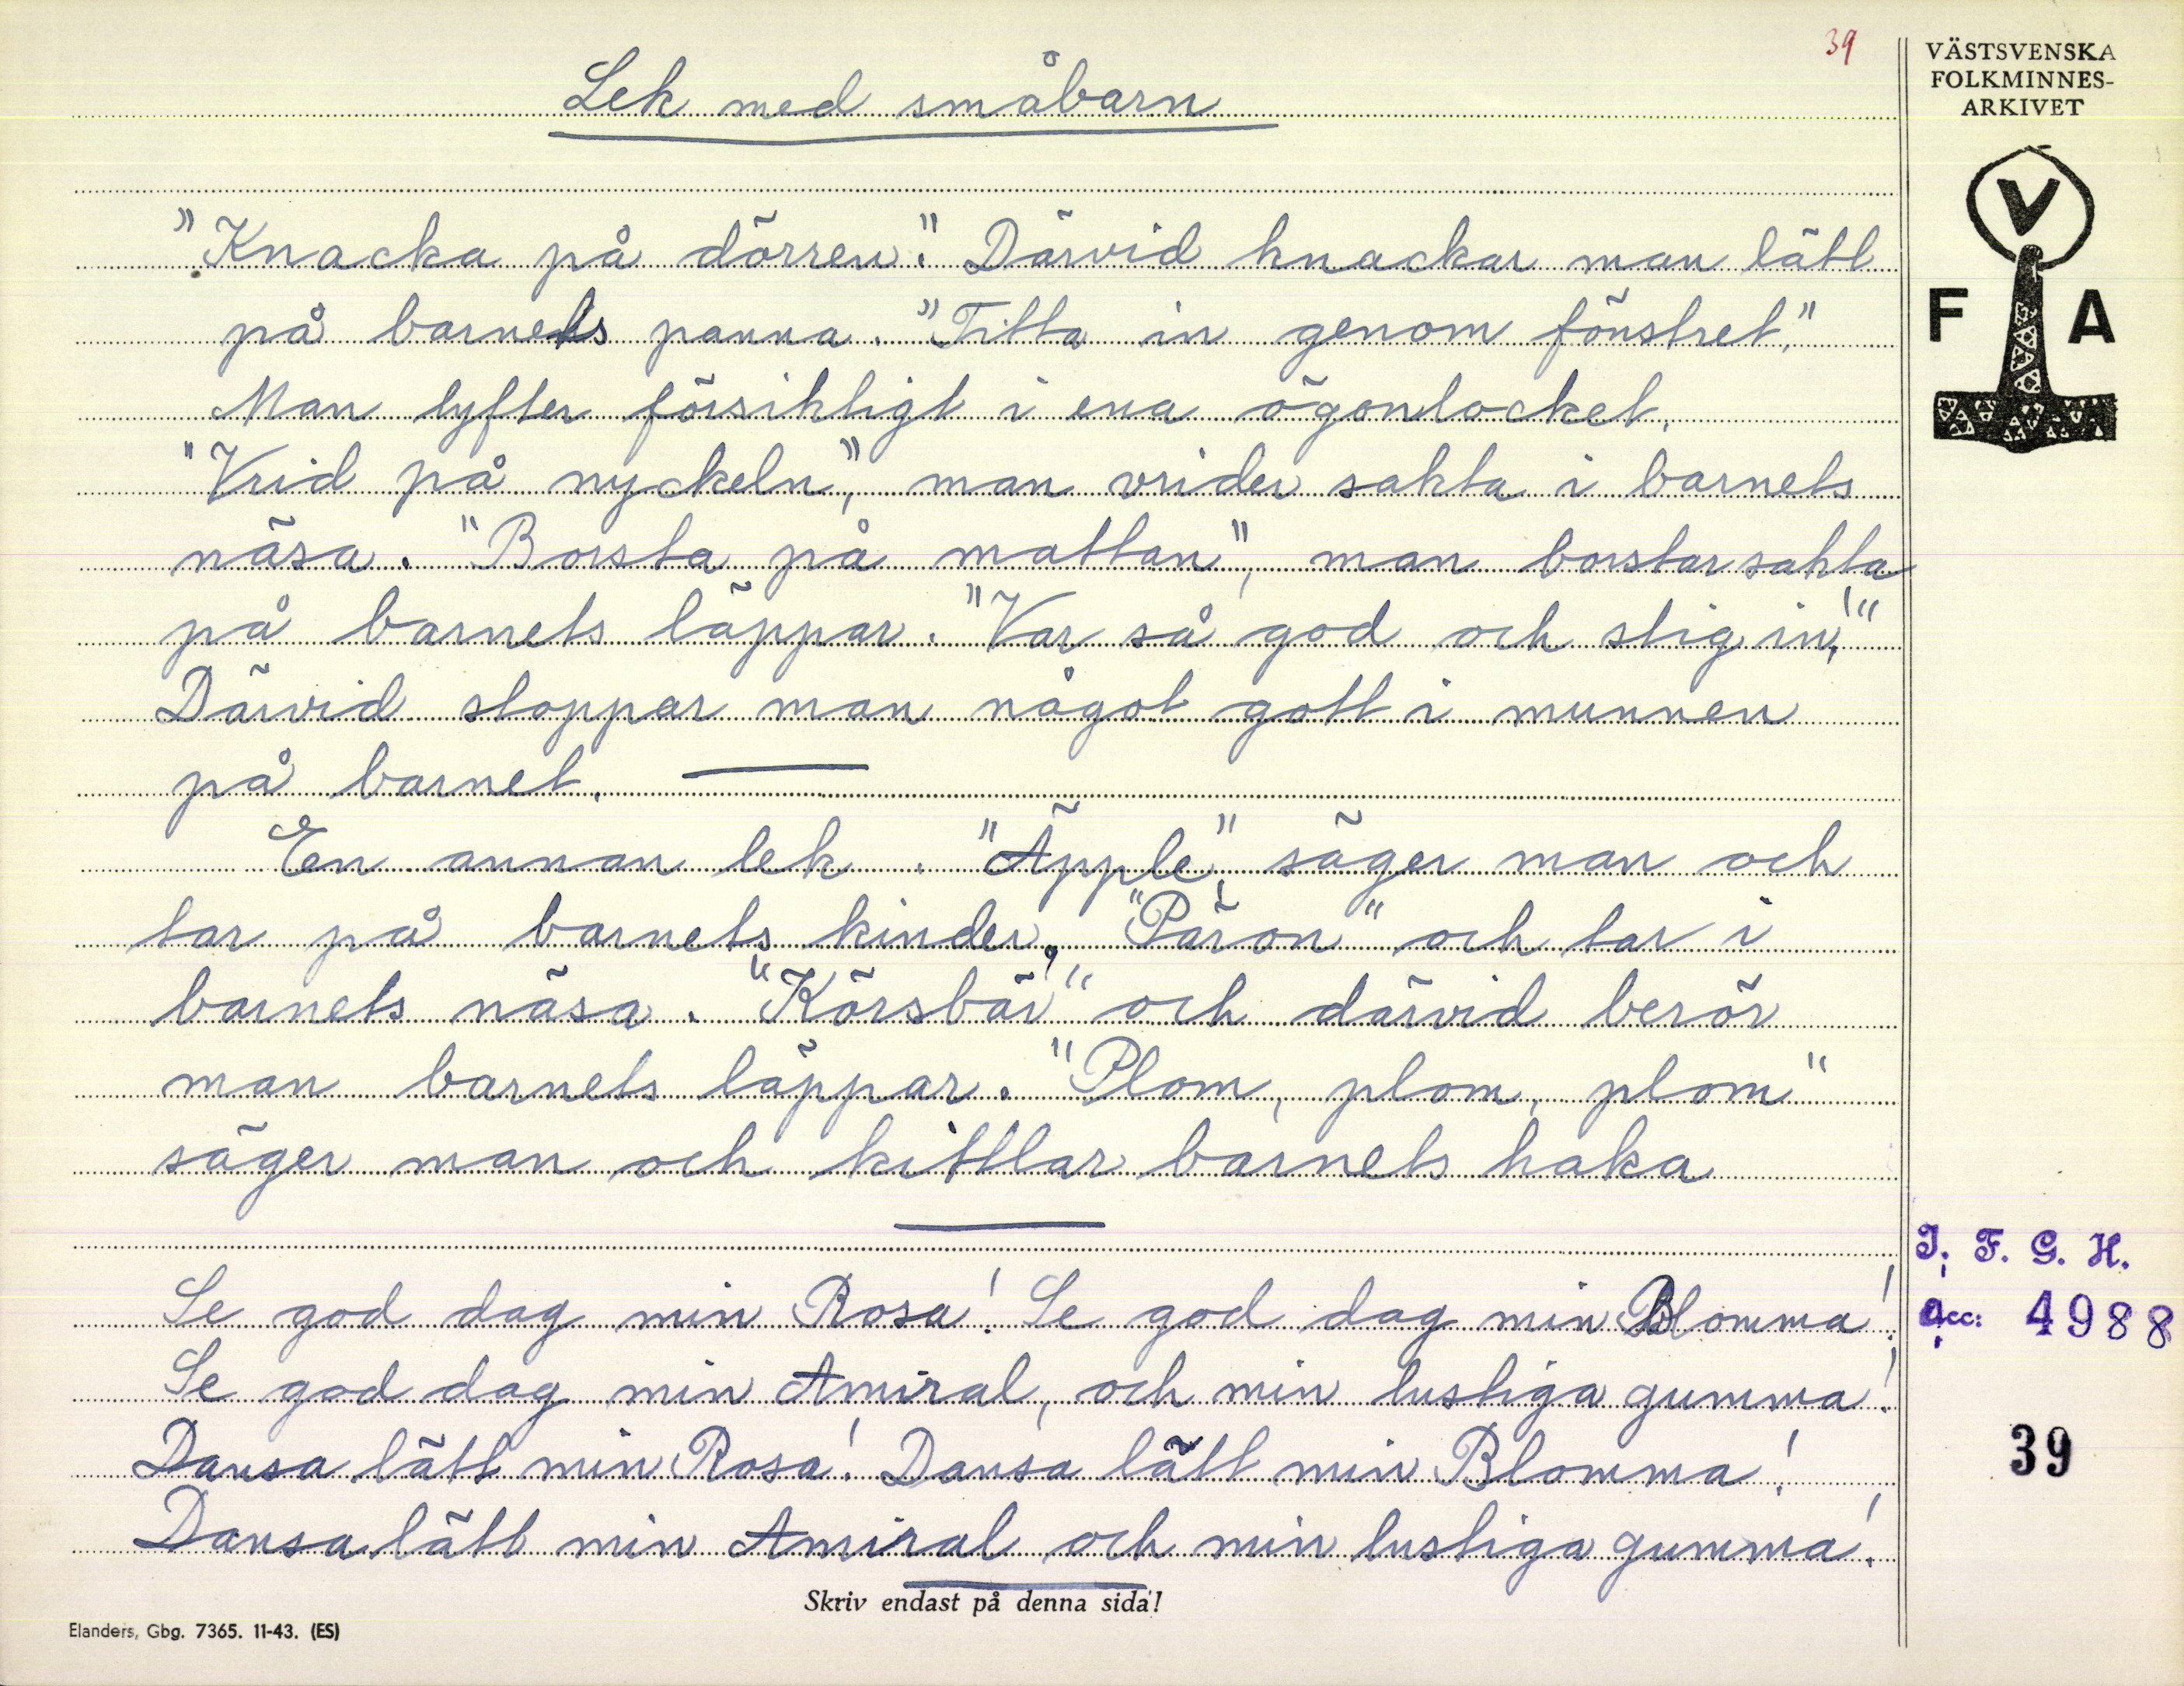 39
VÄSTSVENSKA
FOLKMINNES-
ARKIVET
V
F A
Lek med småbarn
"Knacka på dörren." Därvid knackar man lätt
på barnets panna. "Titta in genom fönstret."
Man lyfter försiktigt i ena ögonlocket.
"Vrid på nyckeln", man vrider sakta i barnets
näsa. "Borsta på mattan", man borstar sakta
på barnets läppar. "Var så god och stig in!"
Därvid stoppar man något gott i munnen
på barnet.
En annan lek. "Äpple", säger man och
tar på barnets kinder, "Päron" och tar i
barnets näsa. "Körsbär" och därvid berör
man barnets läppar. "Plom, plom, plom"
säger man och kittlar barnets haka
Se god dag min Rosa! Se god dag min Blomma!
Se god dag min Amiral, och min lustiga gumma!
Dansa lätt min Rosa! Dansa lätt min Blomma!
Dansa lätt min Amiral och min lustiga gumma!
I. F. G. H.
Acc: 4988
39
Skriv endast på denna sida!
Elanders, Gbg. 7365. 11-43. (ES)